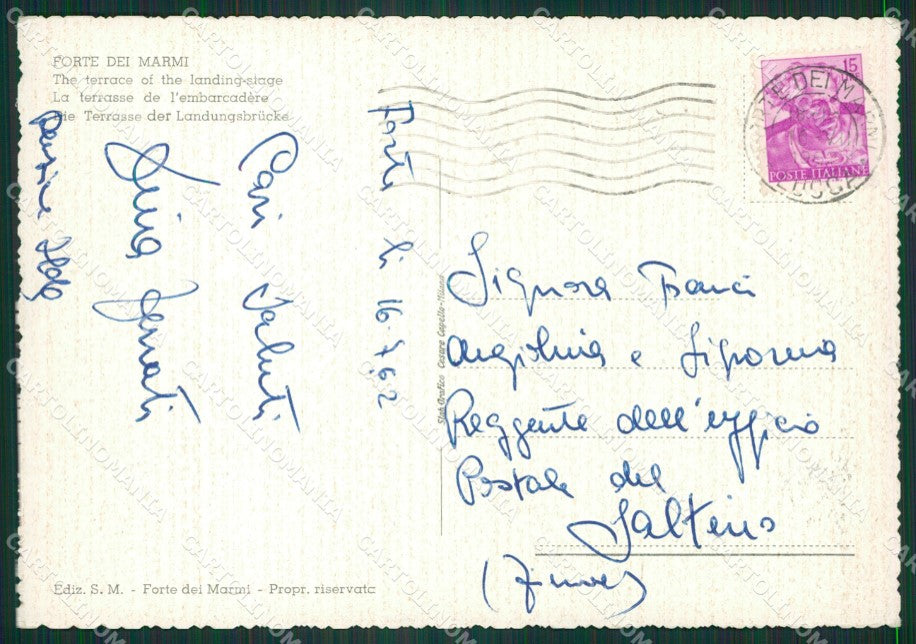 FORTE DEI MARMI
The terrace of the landing-stage
La terrasse de l'embarcadère
Die Terrasse der Landungsbrücke
Forte li 16.7.62
Cari Saluti
pensione Alda
15
POSTE ITALIANE
FORTE DEI MARMI
LUCCA
Signora Franci
Angiolina e Signorina
Reggente dell'ufficio
Postale del
Saltino
(Firenze)
Stab. Grafico Cesare Capello - Milano
Ediz. S. M. - Forte dei Marmi - Propr. riservata
CARTOLINOMANIA